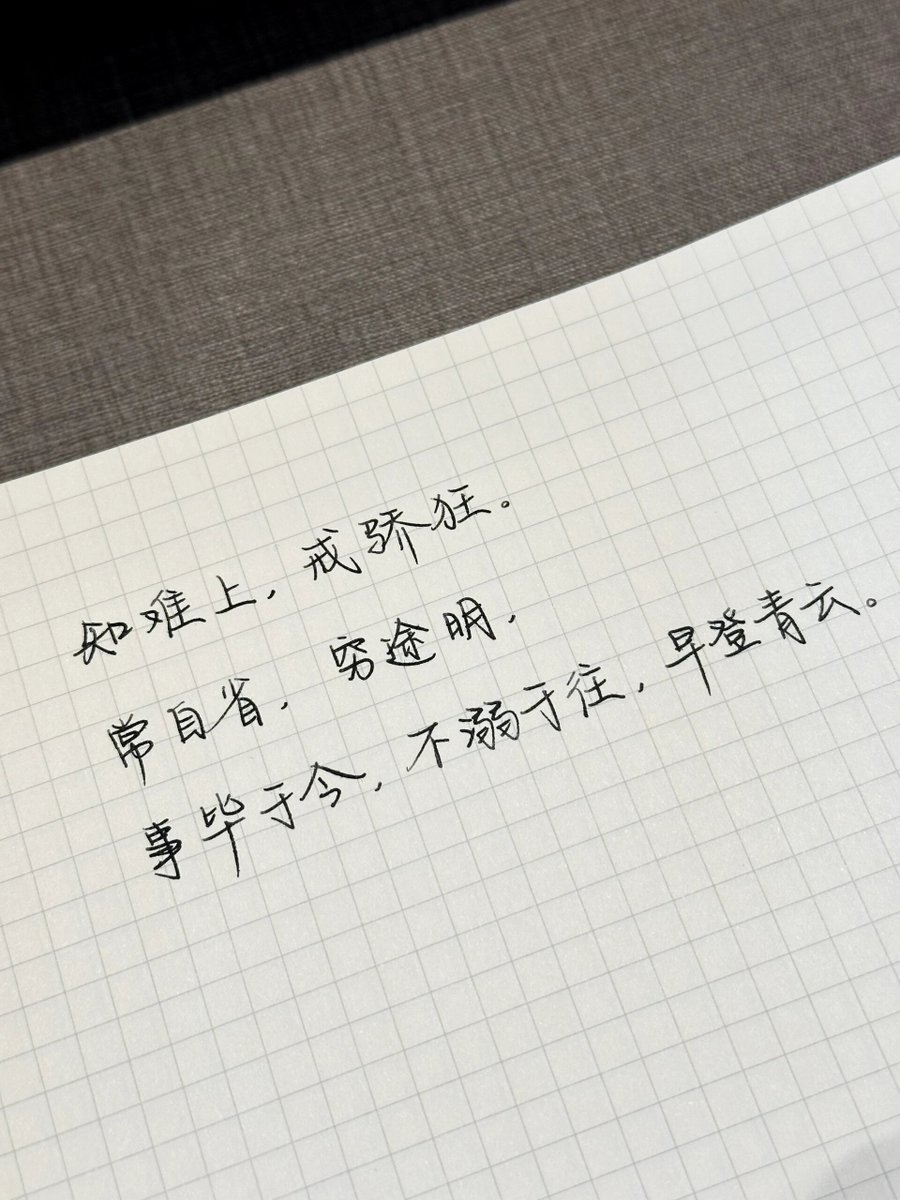 知难上，戒骄狂。
常自省，穷途明，
事毕于今，不溺于往，早登青云。